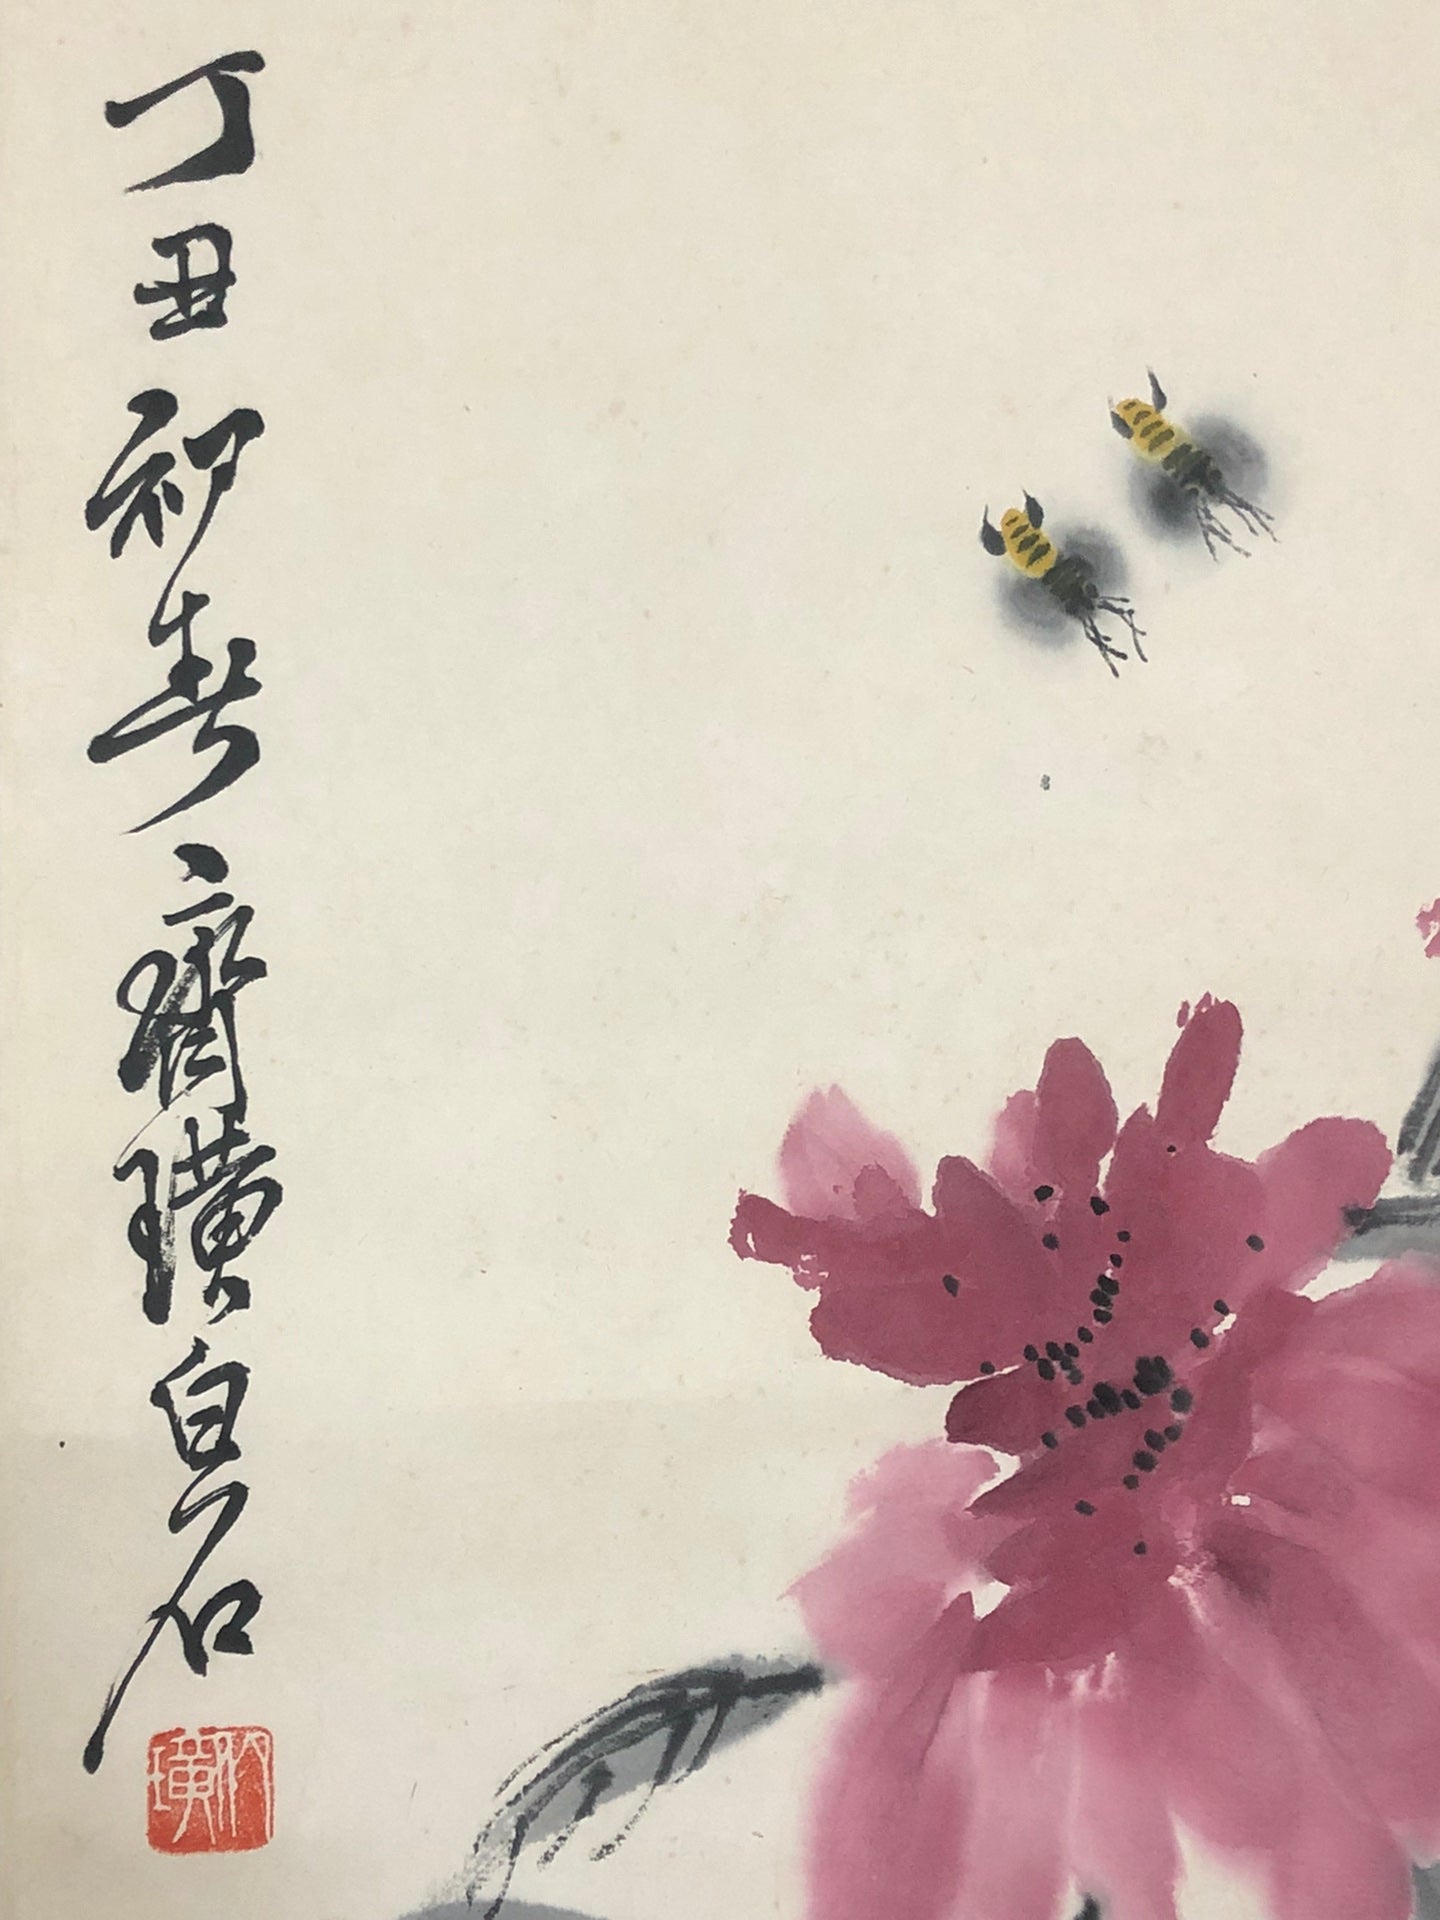 丁丑初春齊璜白石